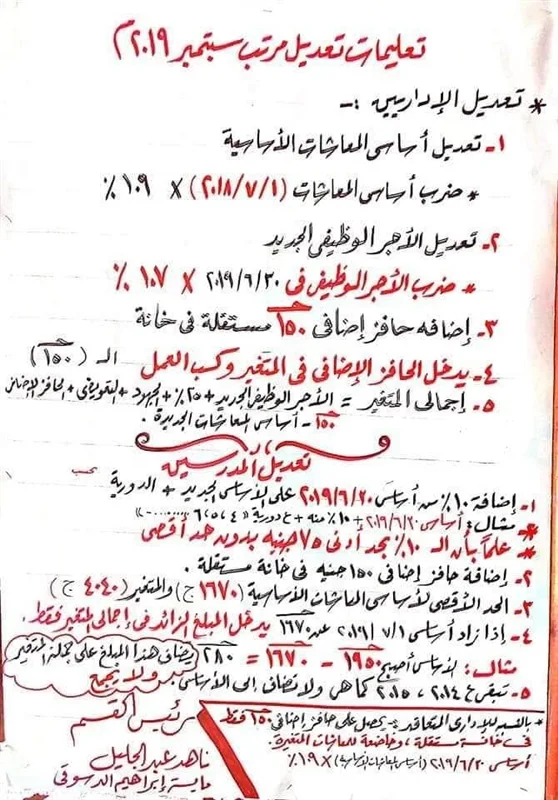 تعليمات تعديل مرتب سبتمبر ٢٠١٩م
* تعديل الإداريين :-
١- تعديل أساسى المعاشات الأساسية
* ضرب أساسى المعاشات (٢٠١٨/٧/١) X ١٠٩ %
٢- تعديل الأجر الوظيفى الجديد
* ضرب الأجر الوظيفى فى ٢٠١٩/٦/٣٠ X ١٠٧ %
٣- إضافه حافز إضافى ١٥٠ مستقلة فى خانة
٤- يدخل الحافز الإضافى فى المتغير وكسب العمل الـ (١٥٠)
٥- إجمالى المتغير = الأجر الوظيفى الجديد + ٢٥% + الجهود + التعويضى + الحافز الإضافى
١٥٠ - أساسى المعاشات الجديدة .
تعديل المدرسين
١- إضافة ١٠% من أساسى ٢٠١٩/٦/٣٠ على الأساسى الجديد + الدورية بحسب
* مثال : أساسى ٢٠١٩/٦/٣٠ + ١٠% منه + ع دورية
* علماً بأن الـ ١٠% بحد أدنى ٧٥ جنيه بدون حد أقصى
٢- إضافة حافز إضافى ١٥٠ جنيه فى خانة مستقلة .
٣- الحد الأقصى لأساسى المعاشات الأساسية (١٦٧٠ ج) والمتغير (٤٠٤٠ ج)
٤- إذا زاد أساسى ٧/١ ٢٠١٩ عن ١٦٧٠ يدخل المبلغ الزائد فى إجمالى المتغير فقط .
مثال : الأساسى أصبح ١٩٥٠ - ١٦٧٠ = ٢٨٠ يضاف هذا المبلغ على جملة المتغير
ولا يجمع
٥- تبقى ع ٢٠١٤ ، ٢٠١٥ كما هى ولا تضاف إلى الأساسى .
* بالنسبة للإدارى المتعاقد :- يحصل على حافز إضافى ١٥٠ فقط
فى خانة مستقلة ، وخاضعة للمعاشات المتغيرة .
أساسى ٢٠١٩/٦/٣٠ X ١٩%
رئيس القسم
ناهد عبد الجليل
مايسة إبراهيم الدسوقى